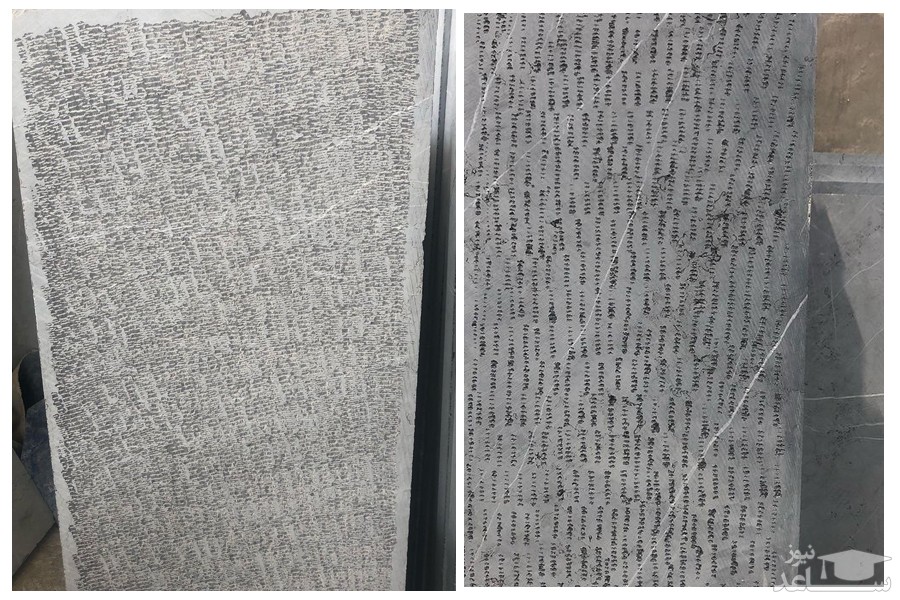 ساعد نیوز